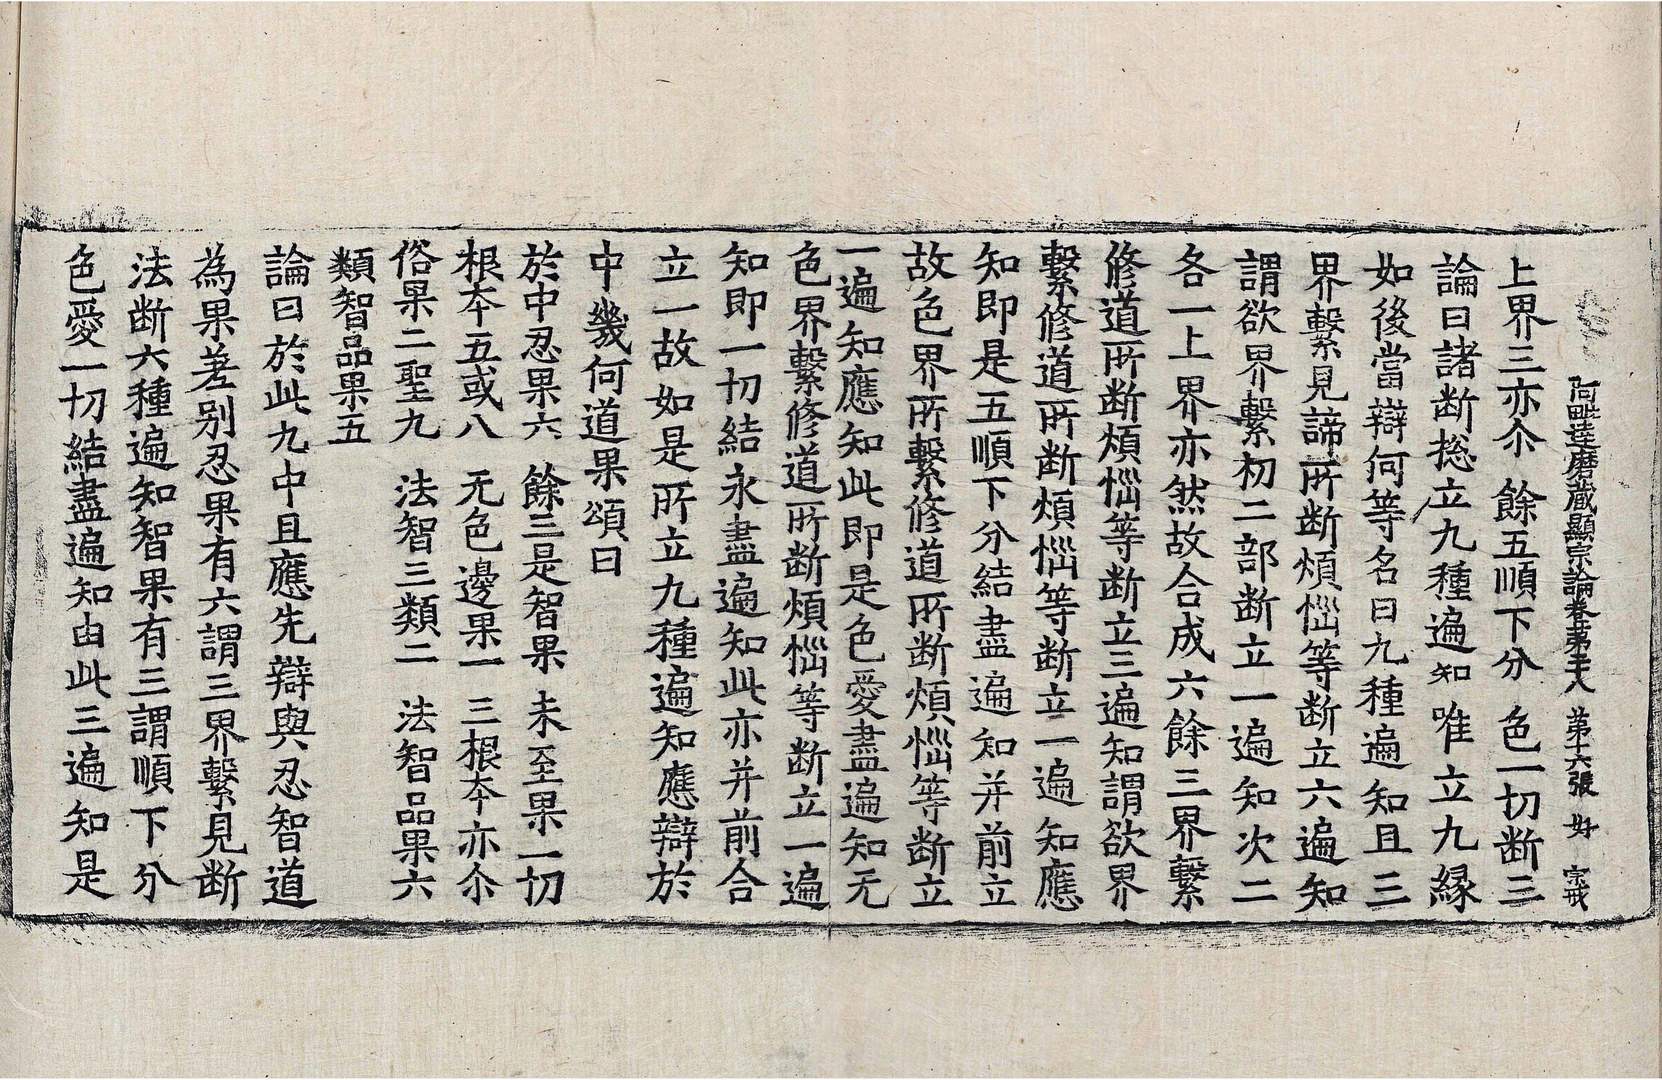 阿毗達磨藏顯宗論卷第二十八 第十六張 好 宗戒
上界三亦尒 餘五順下分 色一切断三
論曰諸断揔立九種遍知唯立九縁
如後當辯何等名曰九種遍知且三
界繫見諦所断煩惱等断立六遍知
謂欲界繫初二部断立一遍知次二
各一上界亦然故合成六餘三界繫
修道所断煩惱等断立三遍知謂欲界
繫修道所断煩惱等断立一遍知應
知即是五順下分結盡遍知并前立
故色界所繫修道所断煩惱等断立
一遍知應知此即是色愛盡遍知无
色界繫修道所断煩惱等断立一遍
知即一切結永盡遍知此亦并前合
立一故如是所立九種遍知應辯於
中幾何道果頌曰
於中忍果六 餘三是智果 未至果一切
根本五或八 无色邊果一 三根本亦尒
俗果二聖九 法智三類二 法智品果六
類智品果五
論曰於此九中且應先辯與忍智道
為果差别忍果有六謂三界繫見断
法断六種遍知智果有三謂順下分
色愛一切結盡遍知由此三遍知是